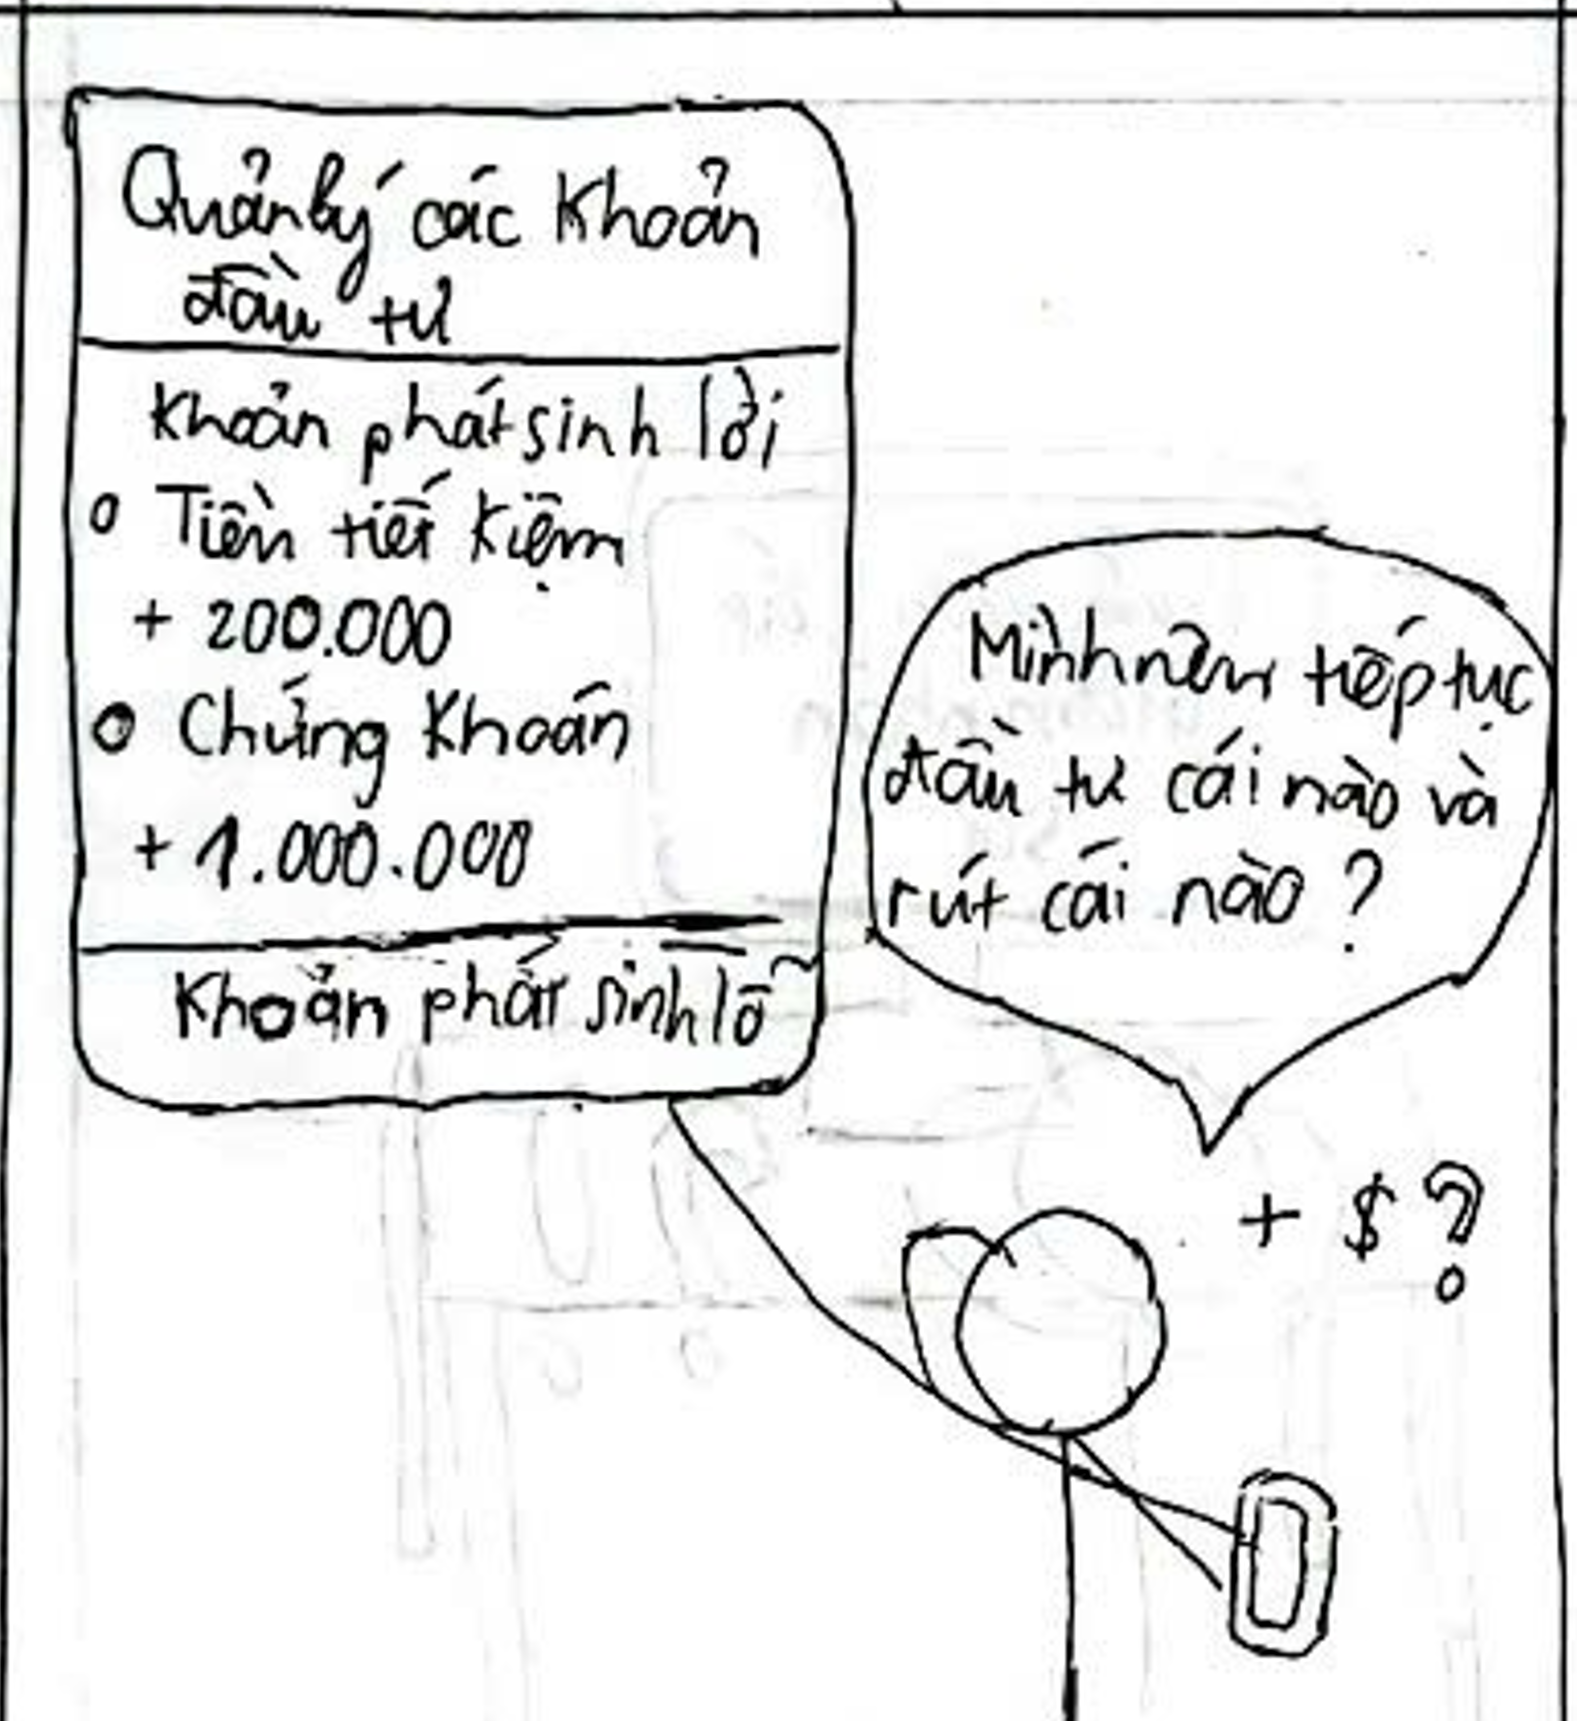 Quản lý các Khoản
đầu tư
Khoản phát sinh lời
o Tiền tiết kiệm
+ 200.000
o Chứng Khoán
+ 1.000.000
Khoản phát sinh lỗ
Mình nên tiếp tục
đầu tư cái nào và
rút cái nào ?
+ $ ?